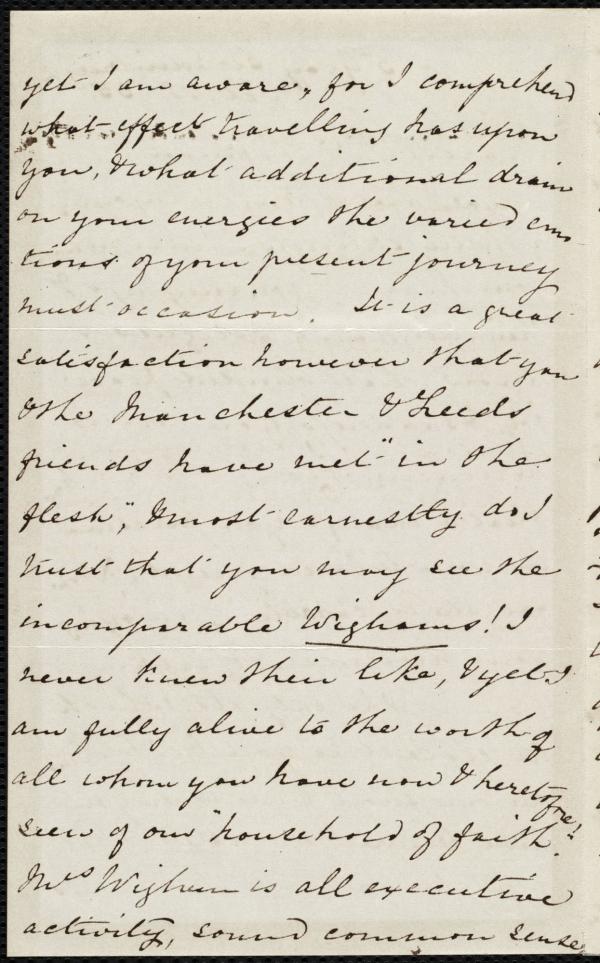 yet I am aware, for I comprehend
what effect travelling has upon
you, & what additional drain
on your energies the varied emo
tions of your present journey
must occasion. It is a great
satisfaction however that you
& the Manchester & Leeds
friends have met "in the
flesh", & most earnestly do I
trust that you may see the
incomparable Wighams! I
never knew their like, & yet I
am fully alive to the worth of
all whom you have now & heretofore!
seen of our "household of faith.
Mrs Wigham is all executive
activity, sound common sense,